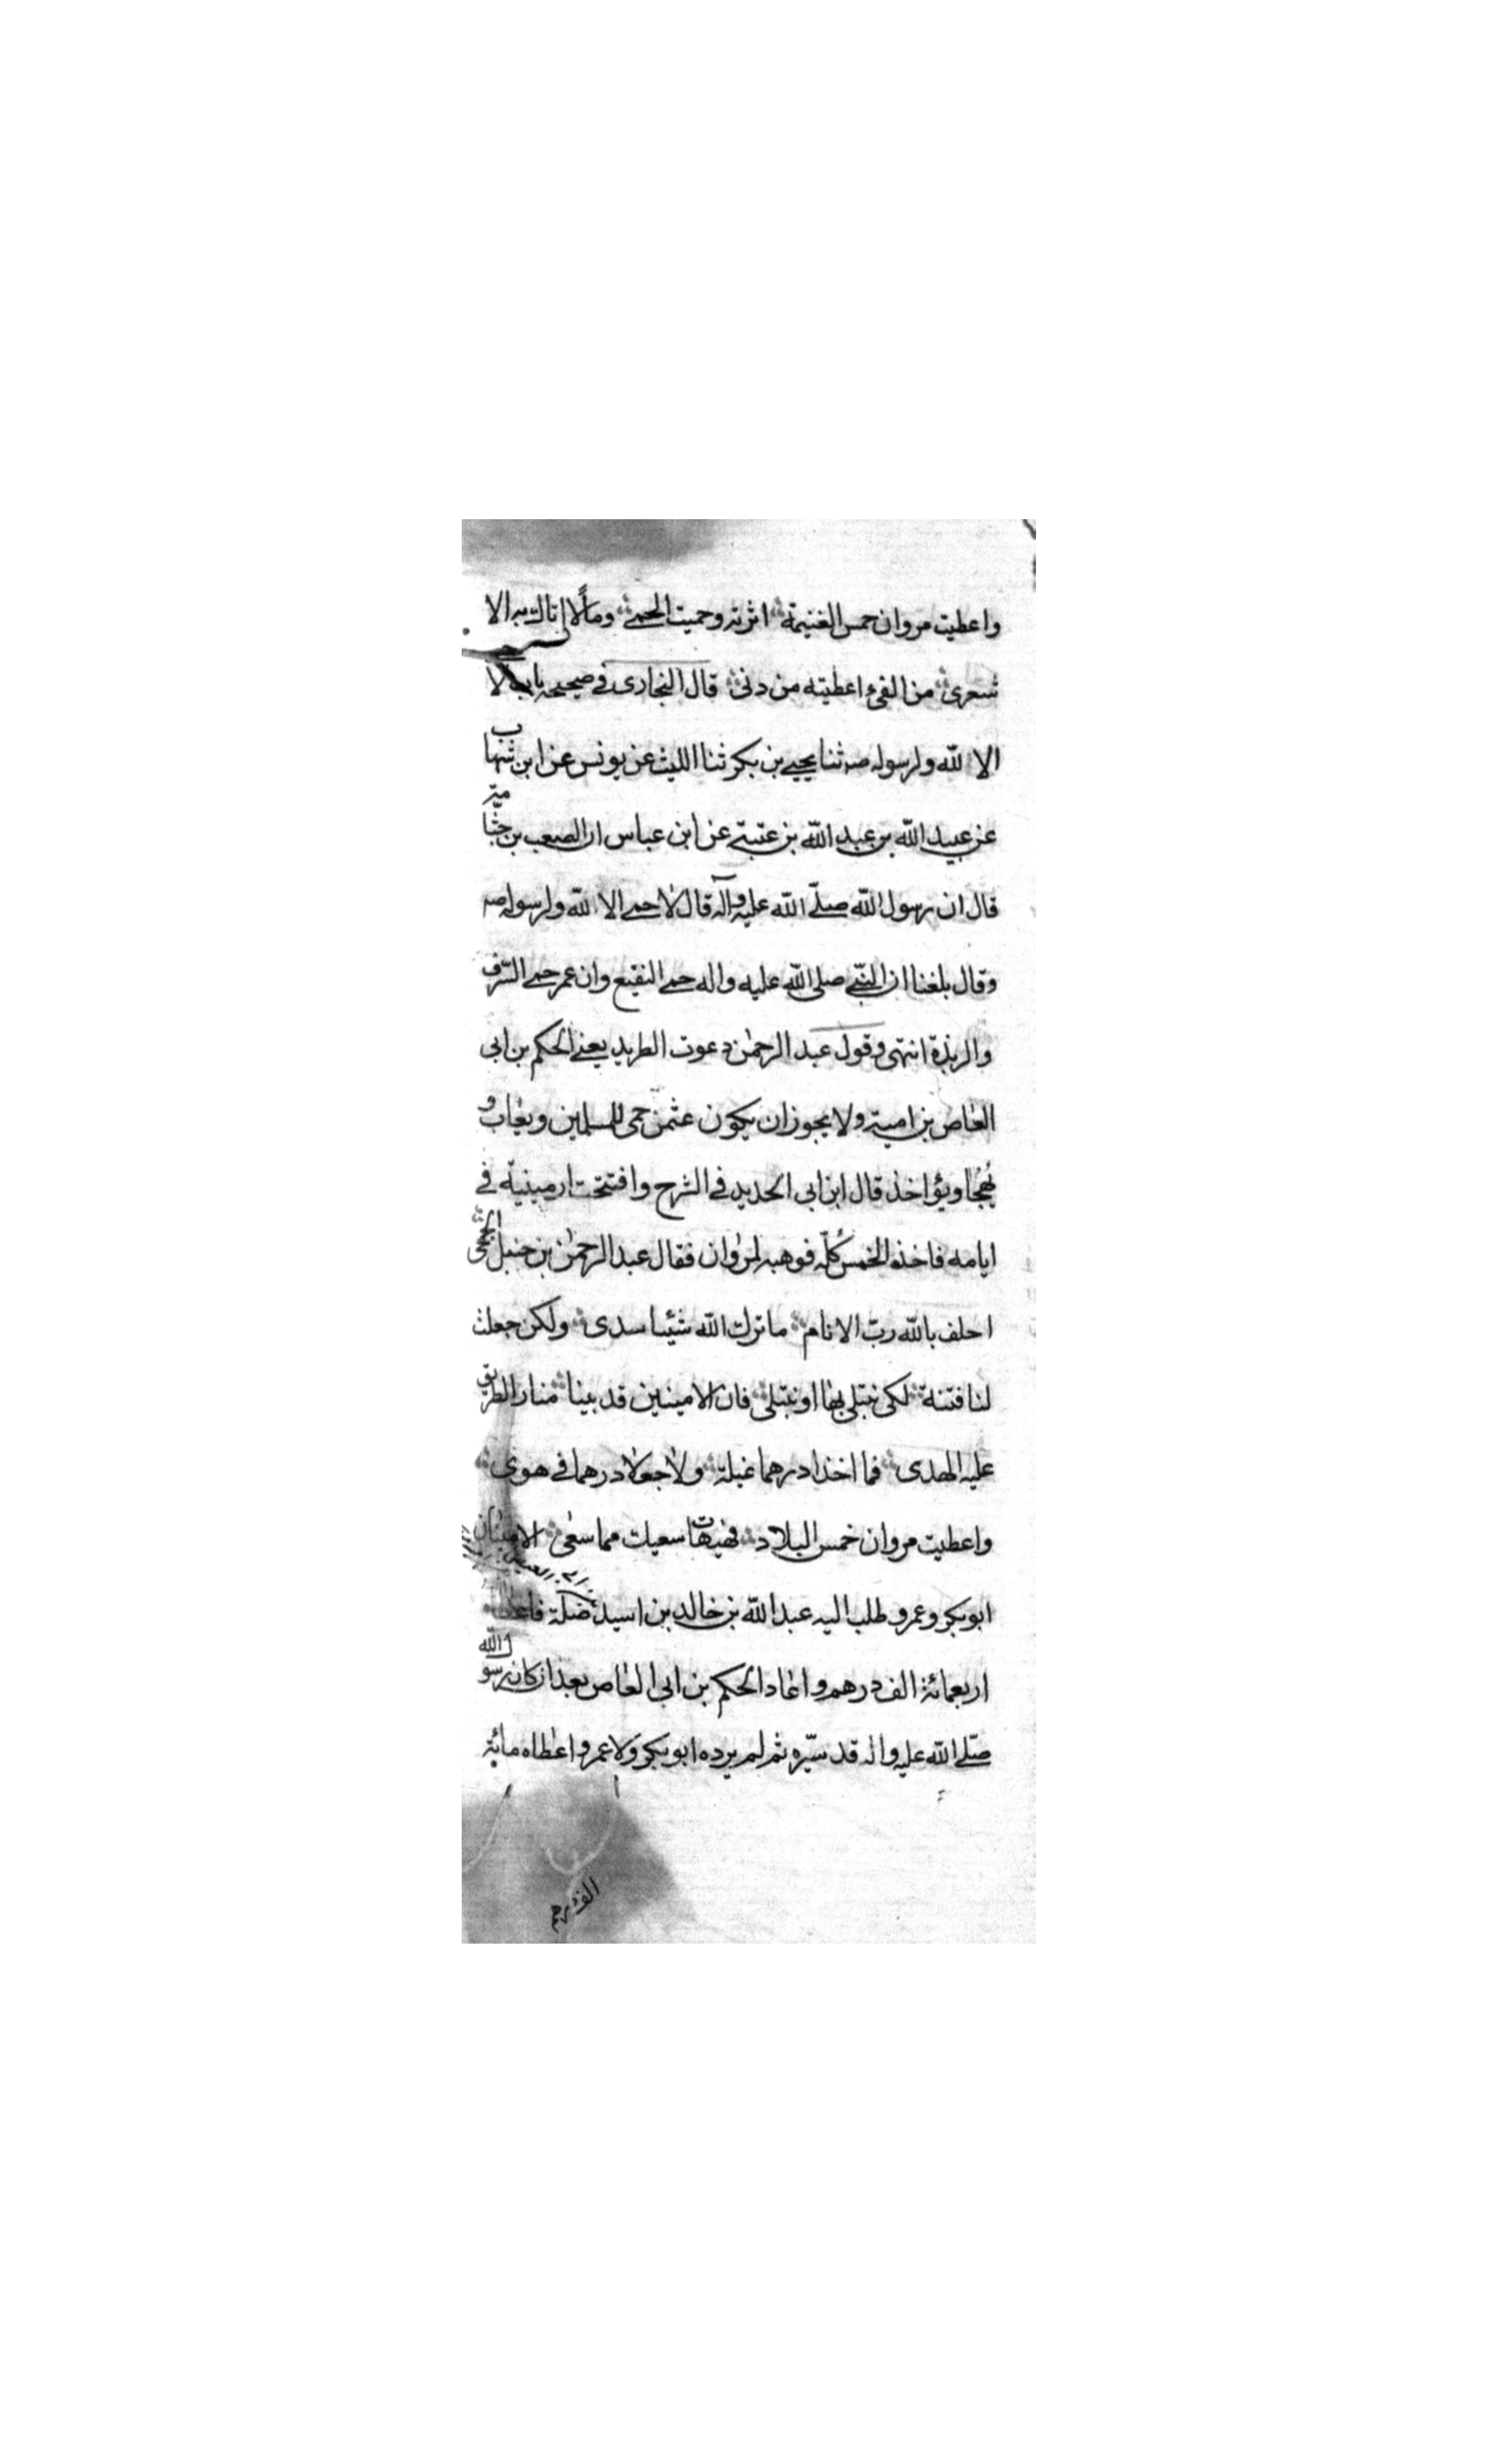 واعطيت مروان خمس الغنيمة اثرته وحميت الحمى ومالا اتاك به الا
شعرى من الفئ اعطيته من دنى قال البخارى في صحيحه باب لا
الا لله ولرسوله صه ثنا يحيى بن بكر ثنا الليث عن يونس عن ابن شهاب
عن عبيد الله بن عبد الله بن عتبة عن ابن عباس ان الصعب بن جثامة
قال ان رسول الله صلى الله عليه وآله قال لا حمى الا لله ولرسوله صه
وقال بلغنا ان النبي صلى الله عليه واله حمى النقيع وان عمر حمى السرف
والربذة انتهى وقول عبد الرحمن دعوت الطريد يعني الحكم بن ابى
العاص بن امية ولا يجوز ان يكون عثمن حمى للمسلمين ويعاب و
يهجا ويؤاخذ قال ابن ابى الحديد في الشرح وافتتحت ارمينية في
ايامه فاخذ الخمس كلّه فوهبه لمروان فقال عبد الرحمن بن حنبل الجمحى
احلف بالله ربّ الانام ما ترك الله شيئا سدى ولكن جعلت
لنا فتنة لكى نبتلى بها او نبتلى فان الامينين قد بينا منار الطريق
عليه الهدى فما اخذا درهما غيلة ولا جعلا درهما في هوى
واعطيت مروان خمس البلاد فهيهات سعيك مما سعى الامينان
ابو بكر وعمر وطلب اليه عبد الله بن خالد بن اسيد صلة فاعطاه
اربعمائة الف درهم واعاد الحكم بن ابى العاص بعد ان كان رسول الله
صلّى الله عليه واله قد سيّره ثم لم يرده ابو بكر ولا عمر واعطاه مائة
الف درهم